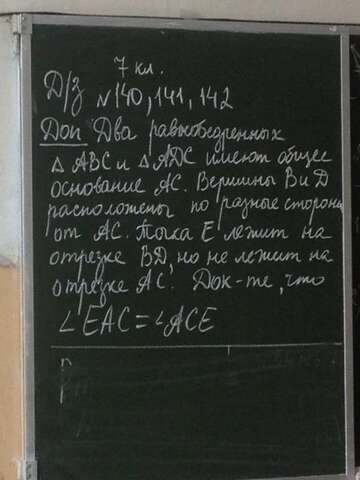 7 кл.
Д/з №140, 141, 142
Доп Два равнобедренных
△ ABC и △ADC имеют общее
основание AC. Вершины B и D
расположены по разные стороны
от AC. Точка E лежит на
отрезке BD, но не лежит на
отрезке AC. Док-те, что
∠EAC = ∠ACE